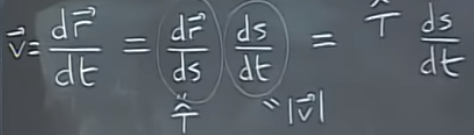 v⃗ = dr⃗/dt = dr⃗/ds ds/dt = T̂ ds/dt
" "
T̂ |v⃗|